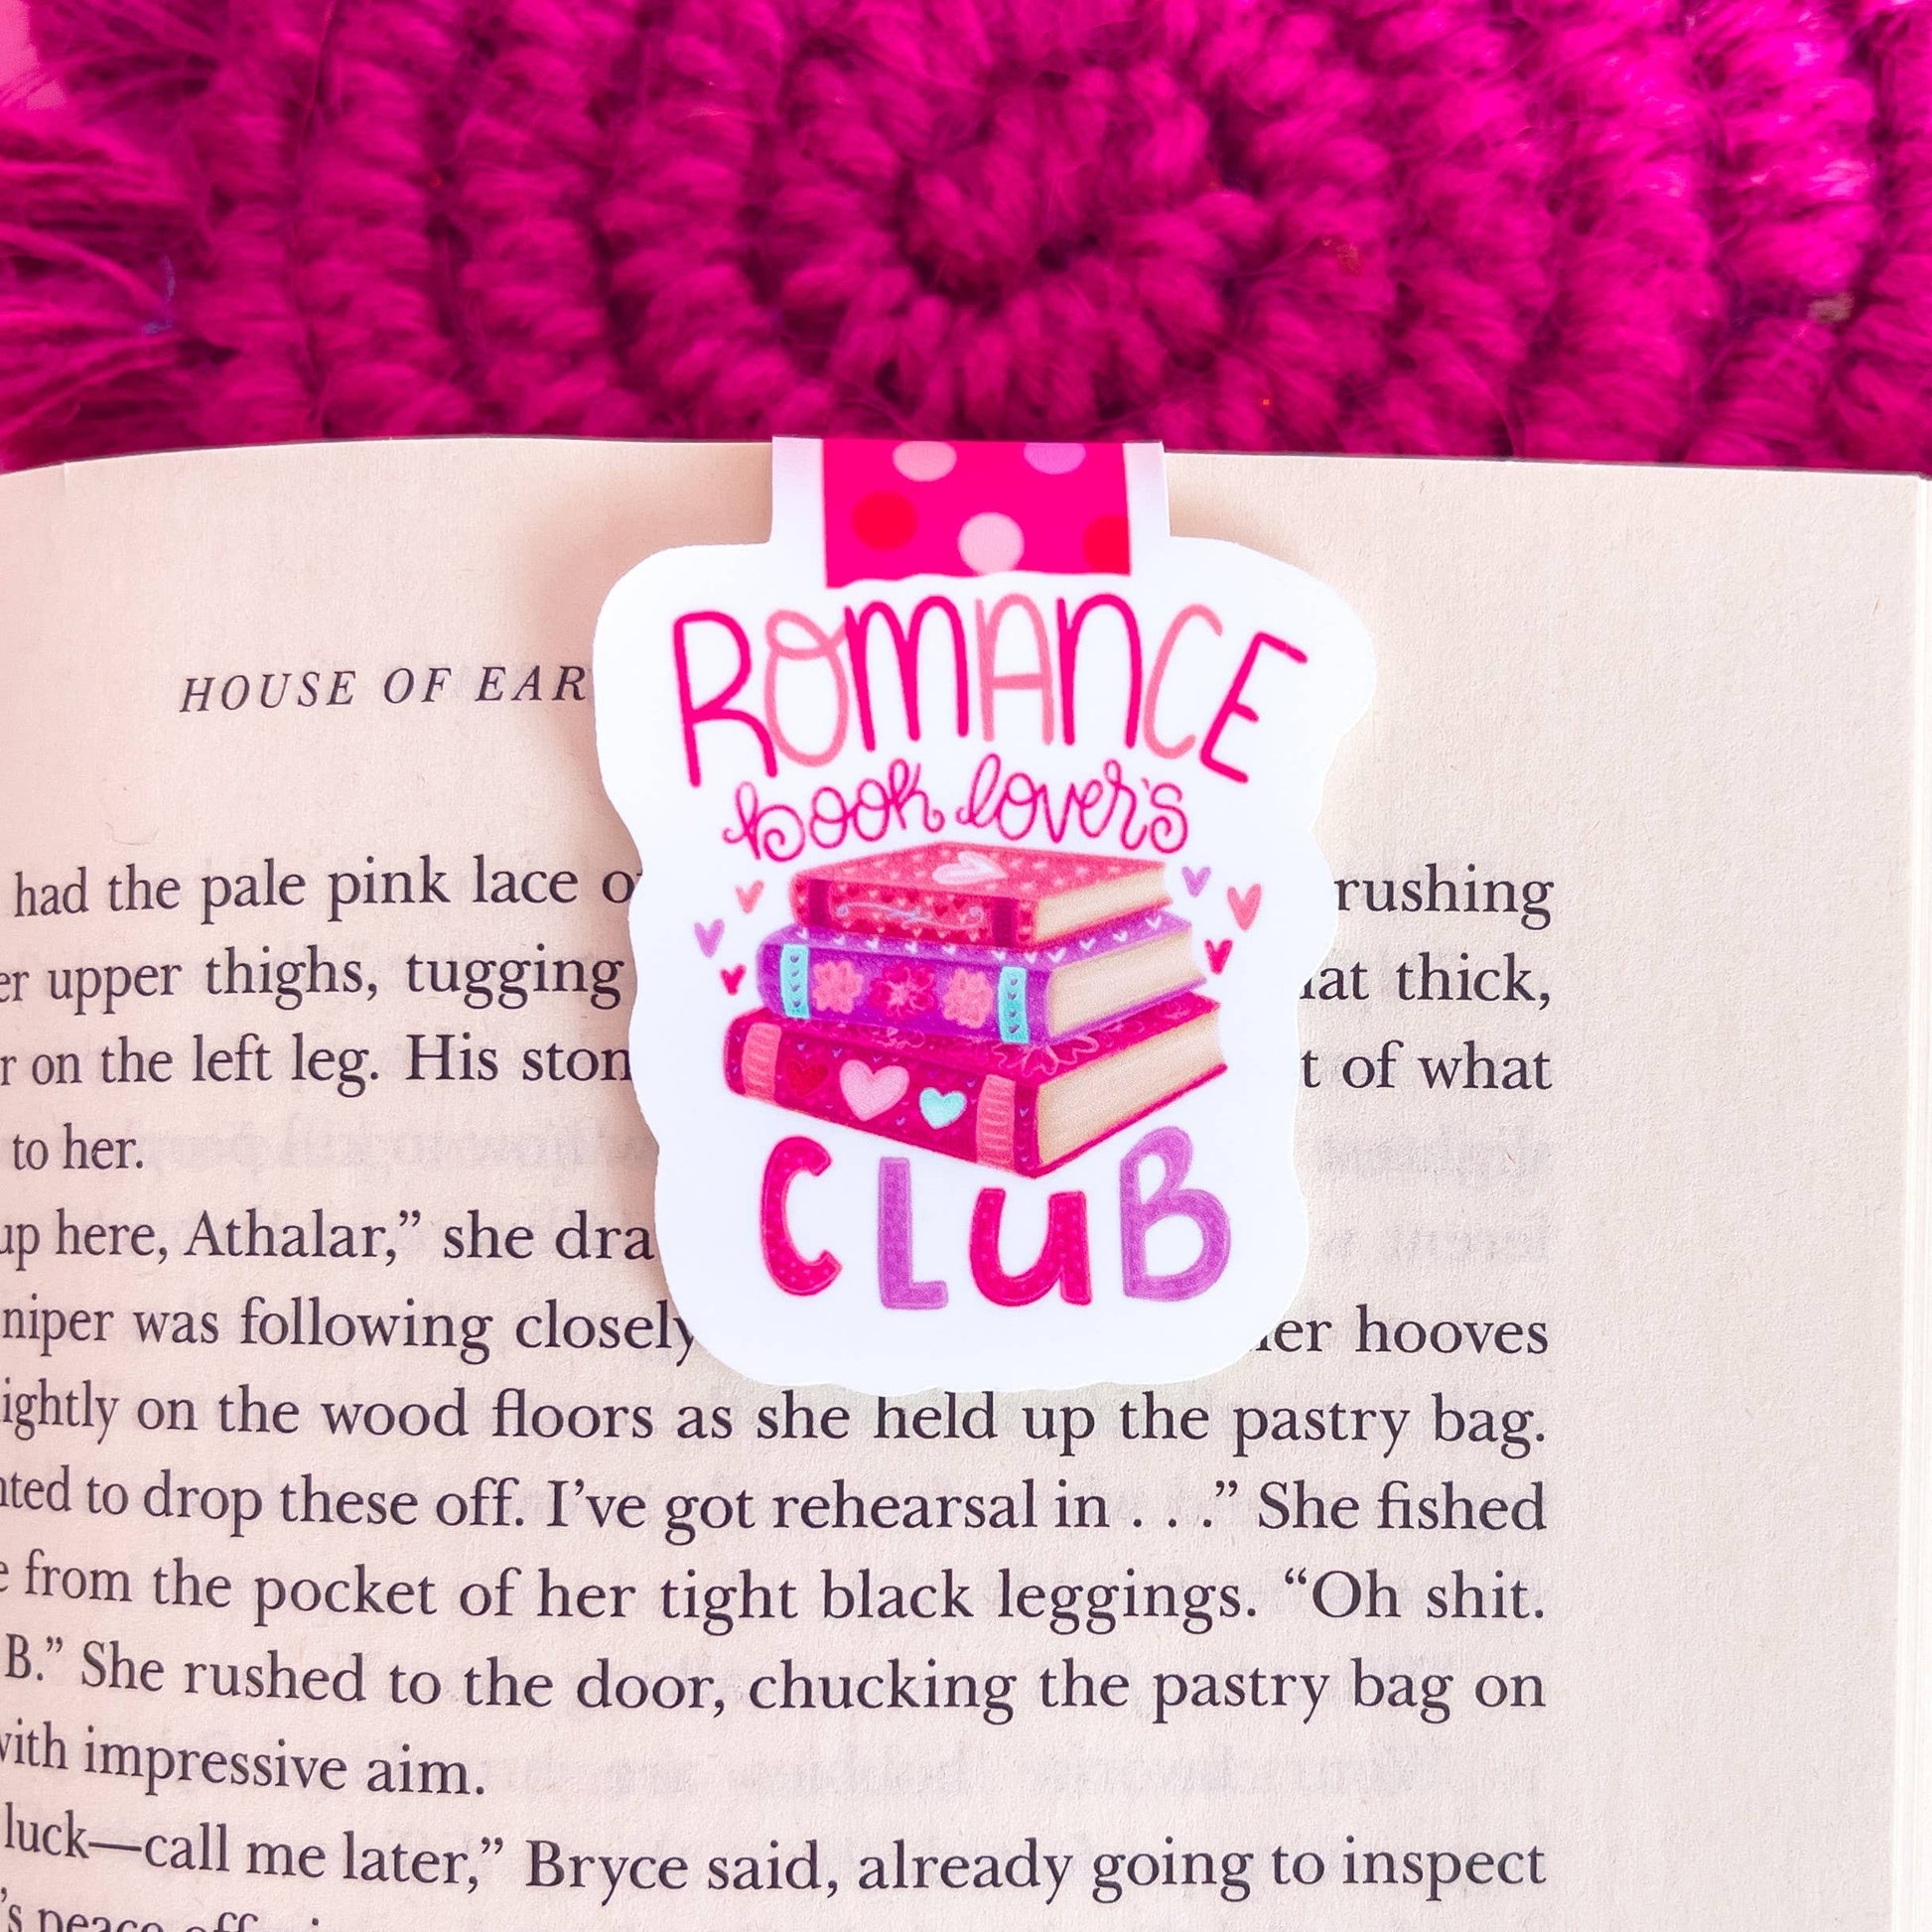 ROMANCE
book lover's
CLUB
HOUSE OF
had the pale pink lace rushing
upper thighs, tugging thick,
on the left leg. His of what
to her.
up here, Athalar,” she
was following closely hooves
on the wood floors as she held up the pastry bag.
to drop these off. I’ve got rehearsal in . . .” She fished
from the pocket of her tight black leggings. “Oh shit.
B.” She rushed to the door, chucking the pastry bag on
with impressive aim.
luck—call me later,” Bryce said, already going to inspect